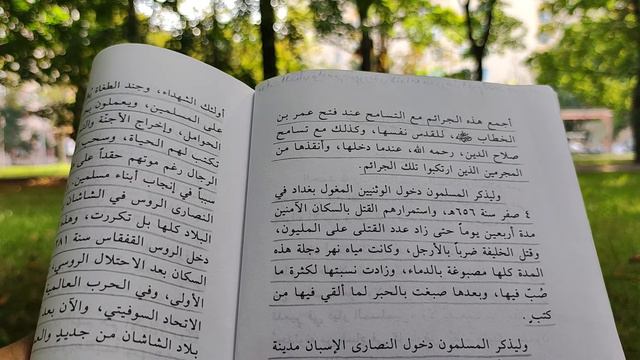 أجمع هذه الجرائم مع التسامح عند فتح عمر بن
الخطاب رضي الله عنه، للقدس نفسها، وكذلك مع تسامح
صلاح الدين، رحمه الله، عندما دخلها، وأنقذها من
المجرمين الذين ارتكبوا تلك الجرائم.
وليذكر المسلمون دخول الوثنيين المغول بغداد في
٤ صفر سنة ٦٥٦هـ، واستمرارهم القتل بالسكان الآمنين
مدة أربعين يوماً حتى زاد عدد القتلى على المليون،
وقتل الخليفة ضرباً بالأرجل، وكانت مياه نهر دجلة هذه
المدة كلها مصبوغة بالدماء، وزادت نسبتها لكثرة ما
صُبّ فيها، وبعدها صبغت بالحبر لما ألقي فيها من
كتب.
وليذكر المسلمون دخول النصارى الإسبان مدينة
أولئك الشهداء، وجند الطغاة
على المسلمين، ويعملون
الحوامل، وإخراج الأجنّة
تكتب لهم الحياة، وسحب
الرجال رغم موتهم حقداً على
سبباً في إنجاب أبناء مسلمين
النصارى الروس في الشاشان
البلاد كلها بل تكررت، وهذه
دخل الروس القفقاس سنة
السكان بعد الاحتلال الروسي
الأولى، وفي الحرب العالمية
الاتحاد السوفيتي، والآن بعد
بلاد الشاشان من جديد